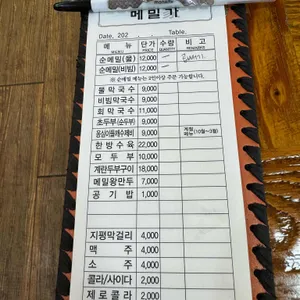 메밀
Date, 202 . . Table.
메 뉴 단가 수량 비 고
MENU PRICE QUANTITY REMARKS
순메밀(물) 12,000
순메밀(비빔) 12,000
※ 순메밀 메뉴는 2인이상 주문 가능합니다.
물 막 국 수 9,000
비빔막국수 9,000
회 막 국 수 11,000
초두부(순두부) 9,000
옹심이들깨수제비 9,000 계절메뉴(10월~3월)
한 방 수 육 22,000
모 두 부 10,000
계란두부구이 18,000
메밀왕만두 7,000
공 기 밥 1,000
지평막걸리 4,000
맥 주 4,000
소 주 4,000
콜라/사이다 2,000
제 로 콜 라 2,000